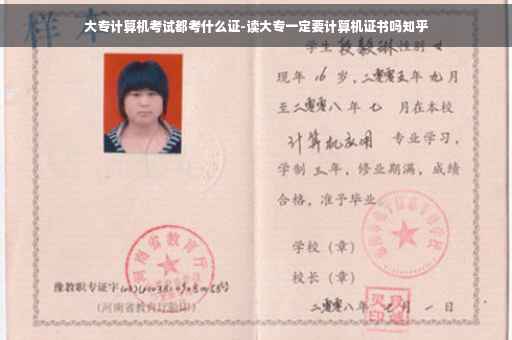 大专计算机考试都考什么证-读大专一定要计算机证书吗知乎
样本
学生 段毅琳 性别 女
现年 16 岁，二零零五年 九月
至二零零八年 七 月在本校
计算机应用 专业学习，
学制 三年，修业期满，成绩
合格，准予毕业。
学校（章）
校长（章）
河南省教育厅
豫教职专证字
（河南省教育厅验印）
二零零八年 七 月 一 日